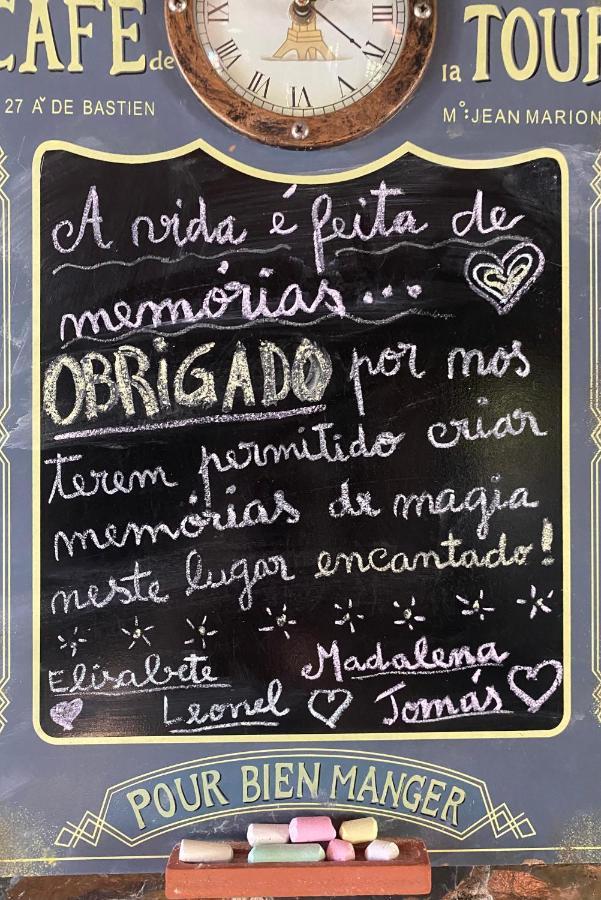 CAFÉ de la TOUR
27 Aˇ DE BASTIEN
Mº: JEAN MARION
A vida é feita de
memórias...
OBRIGADO por nos
terem permitido criar
memórias de magia
neste lugar encantado!
Elisabete Madalena
Leonel Tomás
POUR BIEN MANGER